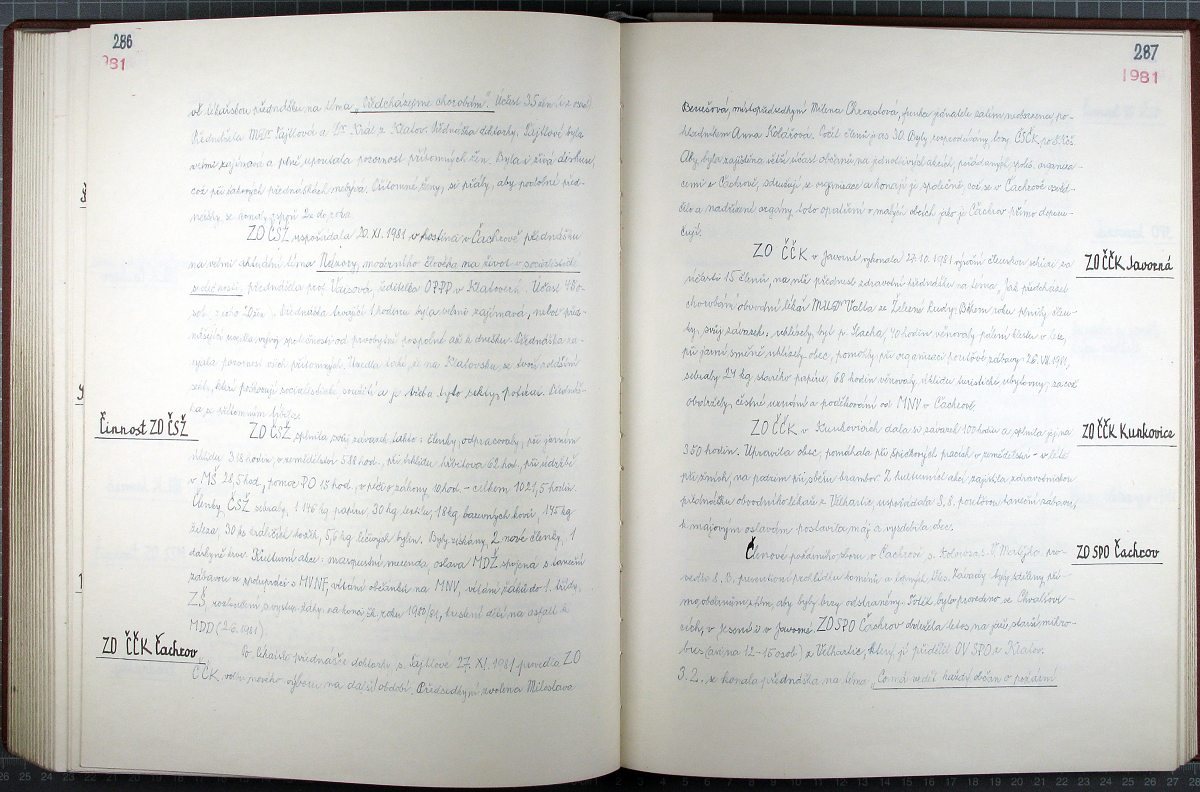 286
981
lékařskou přednášku na téma „Předcházejme chorobám". Účast 35
Přednášela MUDr Lejtlová a Dr. Král z Klatov. Přednáška doktorky Lejtlové byla
velmi zajímavá a plně upoutala pozornost přítomných žen. Byla i živá diskuse,
což při takových přednáškách nebývá. Přítomné ženy si přály, aby podobné před-
nášky se konaly aspoň 2x do roka.
ZO ČSŽ uspořádala 20. XI. 1981 v hostinci v Čachrově přednášku
na velmi aktuální téma Názory moderního člověka na život v socialistické
společnosti, přednášela prof. ředitelka OPPP v Klatovech. Účast 48 o-
sob, z toho Přednáška trvající 1 hodinu byla velmi zajímavá, neboť před-
nášející uvedla vývoj společnosti od prvobytně pospolné až k dnešku. Přednáška za-
ujala pozornost všech přítomných. Uvedla také, že na Klatovsku se tvoří
sekty, které a je třeba tyto sekty potírat. Přednáš-
Činnost ZO ČSŽ
ZO ČSŽ splnila svůj závazek takto: členky odpracovaly při jarním
úklidu 318 hodin, v zemědělství 588 hod., při úklidu hřbitova 62 hod., při údržbě
v MŠ 28,5 hod., pomoc PO 15 hod., v péči o záhony 10 hod. – celkem 1021,5 hodin.
Členky ČSŽ sebraly 1 146 kg papíru, 30 kg textilu, 18 kg barevných kovů, 145 kg
železa, 30 ks králičích kožek, 5,6 kg léčivých bylin. Byly získány 2 nové členky, 1
dárkyně krve. Kulturní akce: maškarní merenda, oslava MDŽ spojená s taneční
zábavou ve spolupráci s MVNF, vítání občánků na MNV, vítání žáků do 1. třídy
ZŠ, rozloučení s vycház. žáky na konci šk. roku 1980/81, kreslení dětí na asfalt k
MDD (2.6.1981).
ZO ČČK Čachrov
Po lékařské přednášce doktorky s. Lejtlové 27. XI. 1981 provedla ZO
ČČK volbu nového výboru na další období. Předsedkyní zvolena Miloslava
287
1981
Benešová, místopředsedkyní Milena Chroustová, funkce jednatele zatím neobsazena, po-
kladníkem Anna Kolářová. Počet členů je as 30. Byly rozprodávány losy ČSČK po 5 Kčs.
Aby byla zajištěna větší účast občanů na jednotlivých akcích, pořádaných spol. organiza-
cemi v Čachrově, sdružují se organizace a konají je společně, což se v Čachrově osvěd-
čilo a nadřízené orgány toto opatření v malých obcích jako je Čachrov přímo doporu-
čují.
ZO ČČK Javorná
ZO ČČK v Javorné vykonala 27. 10. 1981 výroční členskou schůzi za
účasti 15 členů, na níž přednesl zdravotní přednášku na téma „Jak předcházet
chorobám" obvodní lékař MUDr Valta ze Železné Rudy. Během roku plnily člen-
ky svůj závazek: uklízely byt p. Hacha, 40 hodin věnovaly pálení klestu v lese,
při jarní směně uklízely obec, pomohly při organizaci pouťové zábavy 26. VII. 1981,
sebraly 24 kg starého papíru, 68 hodin věnovaly úklidu turistické ubytovny, za což
obdržely čestné uznání a poděkování od MNV v Čachrově.
ZO ČČK Kunkovice
ZO ČČK v Kunkovicích dala si závazek 100 hodin a splnila jej na
350 hodin. Upravila obec, pomáhala při špičkových pracích v zemědělství – v létě
při žních, na podzim při sběru brambor. Z kulturních akcí zajistila zdravotnickou
přednášku obvodního lékaře z Velhartic, uspořádala 9. 8. pouťovou taneční zábavu,
k májovým oslavám postavila máj a vyzdobila obec.
ZO SPO Čachrov
Členové požárního sboru v Čachrově s. a V. Matějka pro-
vedli 8. 3. preventivní prohlídku komínů a topných těles. Závady byly sděleny pří-
mo občanům s tím, aby byly brzy odstraněny. Totéž bylo provedeno ve Chvalšovi-
cích, v Jesení a v Javorné. ZO SPO Čachrov obdržela letos na jaře starší mikro-
bus (avia 12–15 osob) z Velhartic, který jí přidělil OV SPO z Klatov.
3. 2. se konala přednáška na téma „Co má vědět každý občan o požární